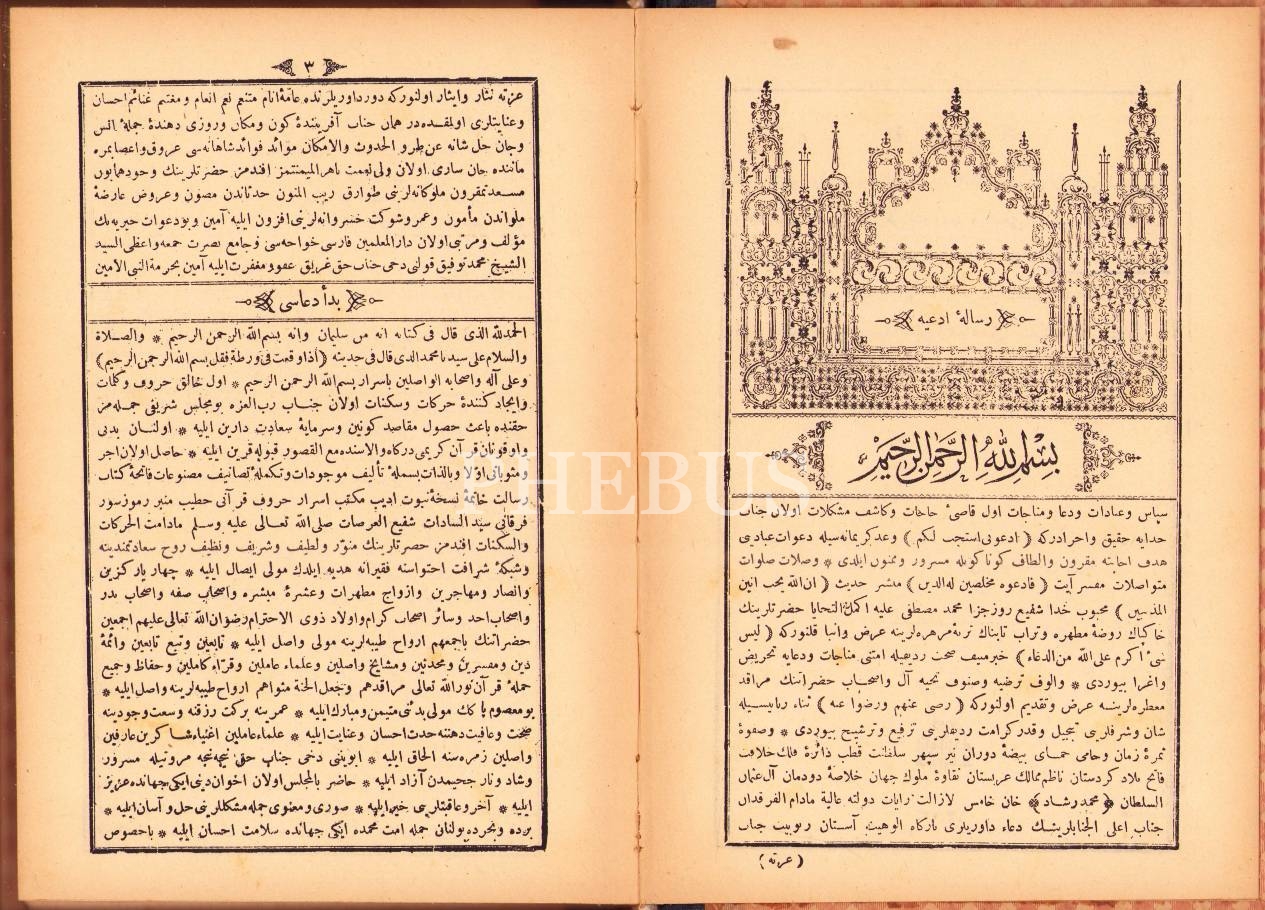 رسالهٔ ادعیه
بِسْمِ اللهِ الرَّحْمٰنِ الرَّحِيْمِ
سپاس وعبادات ودعا ومناجات اول قاضیٔ حاجات وكاشف مشكلات اولان جناب
خدایه حقیق واحرادركه ( ادعونی استجب لكم ) وعد كریمانه سیله دعوات عبادینی
هدف اجابته مقرون والطاف كوناكونیله مسرور وممنون ایلدی * وصلات صلوات
متواصلات مفسر آیت ( فادعوه مخلصین له الدین ) مفسر حدیث ( ان الله یحب انین
المذنبین ) محبوب خدا شفیع روزجزا محمد مصطفی علیه اكمل التحایا حضرتلرینك
خاكپاك روضهٔ مطهره وتراب تابناك تربهٔ مزهره لرینه عرض وانبا قلنوركه ( لیس
شیٔ أكرم علی الله من الدعاء ) خبرمنیف صحت ردیفیله امتنی مناجات ودعایه تحریض
واغرا بیوردی * والوف ترضیه وصنوف تحیه آل واصحاب حضراتنك مراقد
معطره لرینه عرض وتقدیم اولنوركه ( رضی عنهم ورضوا عنه ) ثناء ربانیسیله
شان وشرفلرینی تبجیل وقدر كرامت ردیفلرینی ترفیع وترشیح بیوردی * وصفوهٔ
ثمرهٔ زمان وحامی حمای بیضهٔ دوران نیر سپهر سلطنت قطب دائرهٔ فلك خلافت
فاتح بلاد كردستان ناظم ممالك عربستان نقاوهٔ ملوك جهان خلاصهٔ دودمان آل عثمان
السلطان ﴿ محمد رشاد ﴾ خان خامس لازالت رایات دولته عالیة مادام الفرقدان
جناب اعلی الجنابلرینك دعاء داوریلری بارگاه الوهیت آستان ربوبیت جناب
( عزته )
٣
عزته نثار وایثار اولنوركه دور داوریلرنده عامهٔ انام متنعم نعم انعام ومغتنم غنائم احسان
وعنایتلری اولمقده در همان جناب آفرینندهٔ كون ومكان وروزی دهندهٔ جملهٔ انس
وجان جل شانه عن طرو الحدوث والامكان موائد فوائد شاهانه سی عروق واعصابمزه
ماننده جان ساری اولان ولی نعمت باهر المیمنتمز افندمز حضرتلرینك وجود همایون
مسعدتمقرون ملوكانه لرینی طوارق ریب المنون حدثاندن مصون وعروض عارضهٔ
ملواندن مأمون وعمر وشوكت خسروانه لرینی افزون ایلیه آمین وبو دعوات خیریه نك
مؤلف ومرتبی اولان دار المعلمین فارسی خواجه سی وجامع نصرت جمعه واعظی السید
الشیخ محمد توفیق قولنی دخی جناب حق غریق عفو ومغفرت ایلیه آمین بحرمة النبی الامین
بدأ دعاسی
الحمدلله الذی قال فی كتابه انه من سلیمان وانه بسم الله الرحمن الرحیم * والصلاة
والسلام علی سیدنا محمد الذی قال فی حدیثه ( اذا وقعت فی ورطة فقل بسم الله الرحمن الرحیم )
وعلی آله واصحابه الواصلین باسرار بسم الله الرحمن الرحیم * اول خالق حروف وكلمات
وایجاد كنندهٔ حركات وسكنات اولان جناب رب العزه بو مجلس شریفی جمله مز
حقنده باعث حصول مقاصد كونین وسرمایهٔ سعادت دارین ایلیه * اولنان بدئی
واوقونان قرآن كریمی درگاه والاسنده مع القصور قبوله قرین ایلیه * حاصل اولان اجر
ومثوباتی اولا وبالذات بسملهٔ تألیف موجودات وتكملهٔ تصانیف مصنوعات فاتحهٔ كتاب
رسالت خاتمهٔ نسخهٔ نبوت ادیب مكتب اسرار حروف قرآنی خطیب منبر رموز سور
فرقانی سید السادات شفیع العرصات صلی الله تعالی علیه وسلم مادامت الحركات
والسكنات افندمز حضرتلرینك منور ولطیف وشریف ونظیف روح سعادتمندینه
وشبكهٔ شرافت احتواسنه فقیرانه هدیه ایلدك مولی ایصال ایلیه * چهار یار گزین
وانصار ومهاجرین وازواج مطهرات وعشرهٔ مبشره واصحاب صفه واصحاب بدر
واصحاب احد وسائر اصحاب كرام واولاد ذوی الاحترام رضوان الله تعالی علیهم اجمعین
حضراتنك باجمعهم ارواح طیبه لرینه مولی واصل ایلیه * تابعین وتبع تابعین وائمهٔ
دین ومفسرین ومحدثین ومشایخ واصلین وعلماء عاملین وقراء كاملین وحفاظ وجمیع
حملهٔ قرآن نورالله تعالی مراقدهم وجعل الجنة مثواهم ارواح طیبه لرینه واصل ایلیه *
بو معصوم پاكك مولی بدئنی متیمن ومبارك ایلیه * عمرینه بركت رزقنه وسعت وجودینه
صحت وعافیت ذهننه حدت احسان وعنایت ایلیه * علماء عاملین اغنیاء شاكرین عارفین
واصلین زمره سنه الحاق ایلیه * ابویننی دخی جناب حق نیجه نیجه مروتیله مسرور
وشاد ونار جحیمدن آزاد ایلیه * حاضر بالمجلس اولان اخوان دینی ایكی جهانده عزیز
ایلیه * آخر وعاقبتلرینی خیر ایلیه * صوری ومعنوی جمله مشكللرینی حل وآسان ایلیه *
برده وبحرده بولنان جمله امت محمده ایكی جهانده سلامت احسان ایلیه * باخصوص
PHEBUS